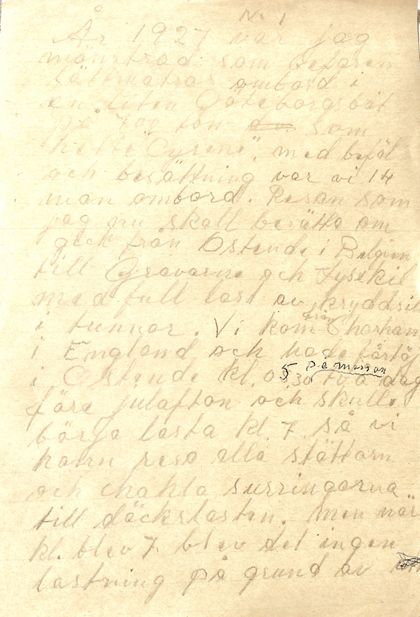 No 1
År 1927 var jag
mönstrad som befaren
lättmatros ombord i
en liten Göteborgsbåt
på 700 ton som
hette "Cyrene", med befäl
och besättning var vi 14
man ombord. Resan som
jag nu skall berätta om
gick från Ostende i Belgien
till Gravarne och Lysekil
med full last av kryddsill
i tunnor. Vi kom från
i England och hade förtöjt
i Ostende kl. 05,30 på morgon två dag
före julafton och skulle
börja lasta kl. 7. så vi
hann resa alla stöttorn
och chakla surringarna
till däckslasten. Men när
kl. blev 7 blev det ingen
lastning på grund av